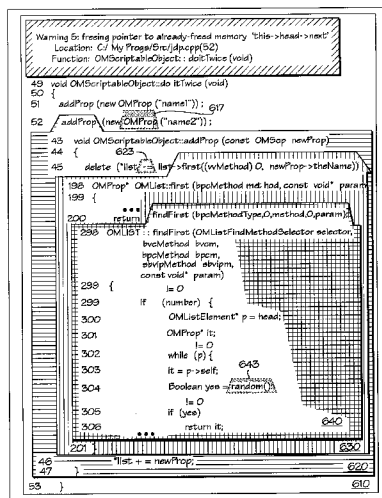 Warning 5: freeing pointer to already-freed memory "this->head->next"
Location: C:/ My Progs/Src/jdp.cpp(52)
Function: OMScriptableObject:: doitTwice (void)
49 void OMScriptableObject::do itTwice (void)
50 {
51 addProp (new OMProp ("name1")) ;
617
52 addProp (new OMProp ("name2")) ;
43 void OMScriptableObject::addProp (const OMSop newProp)
44 {
623
45 delete (*list - list->first((wMethod) 0, newProp->theName))
198 OMProp* OMList::first (bpcMethod method, const void* param
199 {
•••
200 return findFirst (bpcMethodType,0,method,0,param);
298 OMLIST :: findFirst (OMListFindMethodSelector selector,
bvcMethod bvcm,
bpcMethod bpcm,
sbvipMethod sbvipm,
const void* param)
298 {
!= 0
299 if (number) {
300 OMListElement* p = head;
301 OMProp* it;
!= 0
302 while (p) {
303 it = p->self;
643
304 Boolean yes = random()
!= 0
305 if (yes)
306 return it;
640
•••
201 }
630
46 *list + = newProp;
47 }
620
53 }
610